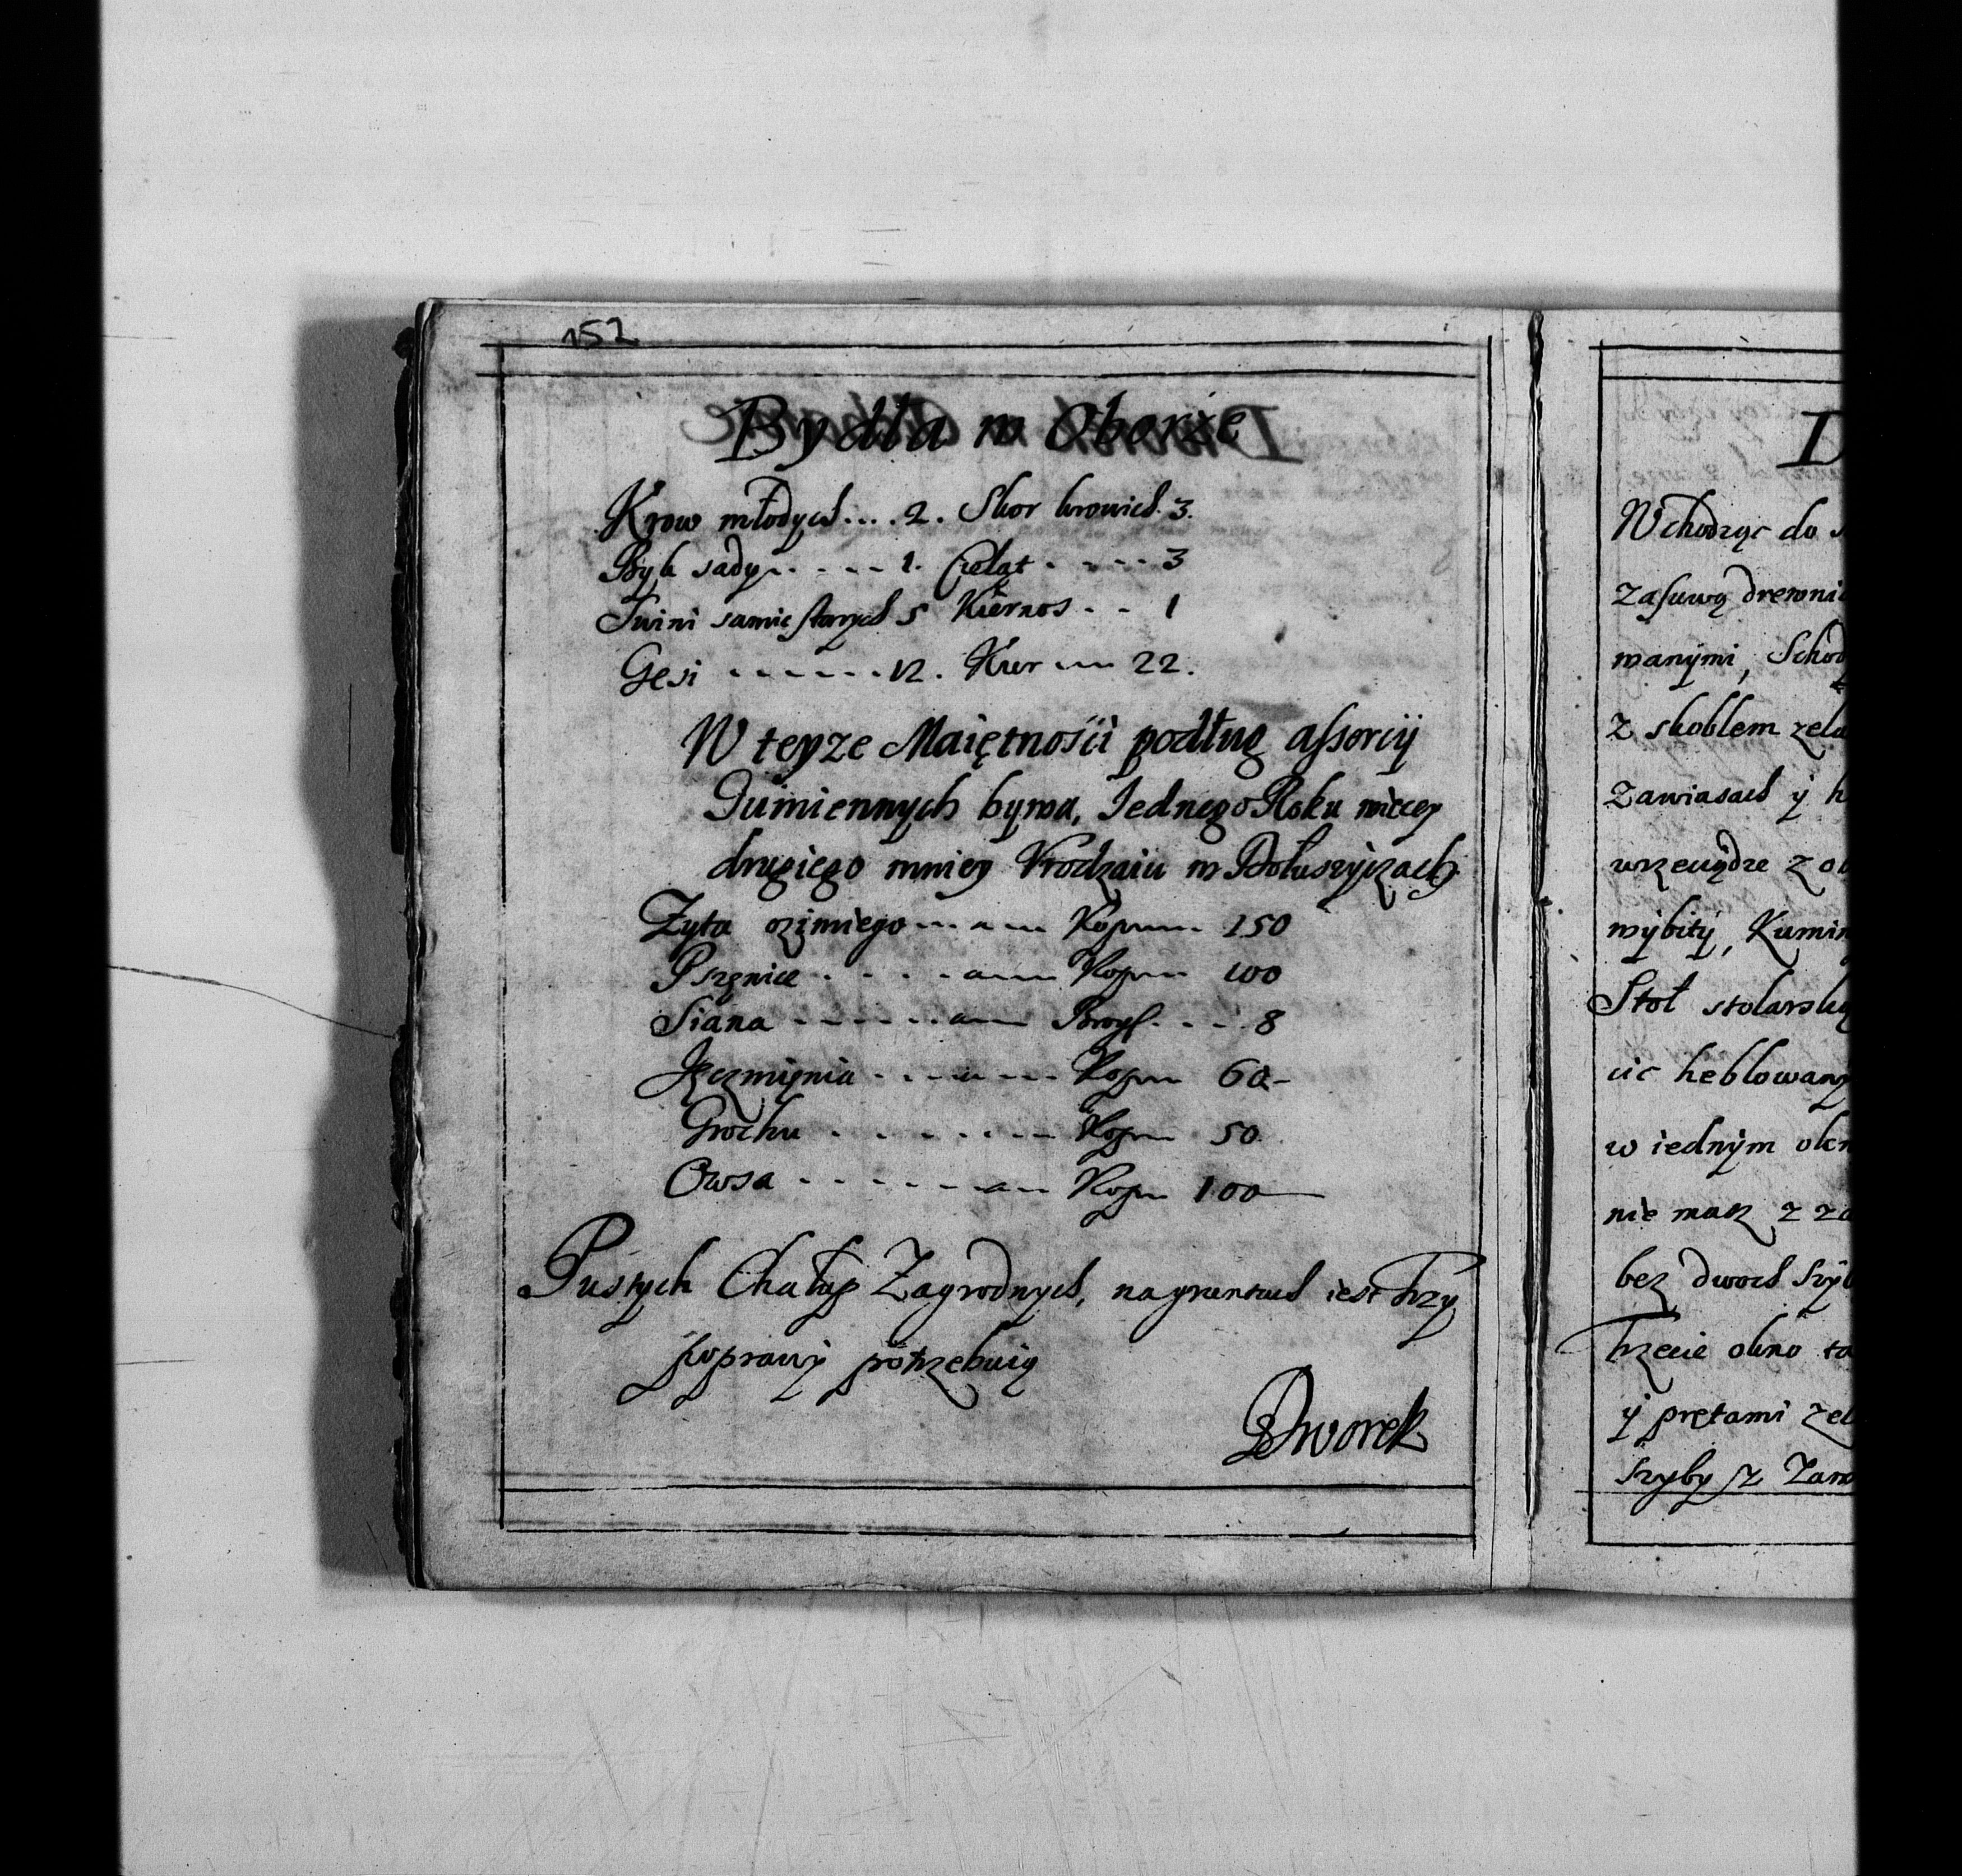 152
Bydła w Oborze
Krow młodych.... 2. Skor krowich. 3.
Byk sady.. - - - 1. Cieląt . - - - 3
Swini samic starych 5 Kiernos - - 1
Gęsi - - - - - - 12. Kur --- 22.
W teyze Maiętnosci podług assercij
Gumiennych bywa, Jednego Roku więcey
drugiego mniey Vrodzaiu w Dołuszyczach
Zyta ozimiego --- Kop 150
Pszęnice . - . - --- Kop 100
Siana - - - - - . --- Brog. - - . 8
Jęczmięnia - . - --- Kop 60-
Grochu . - . - . --- Kop 50.
Owsa - - - - - --- Kop 100
Pustych Chałup Zagrodnych, na gruntach iest Trzy
poprawy potrzebuią
Dworek
D
Wchodząc do
zasuwą drewni
wanymi, Schod
z skoblem zela
zawiasach y h
wrzeciądze z o
wybity, Kumin
Stoł stolarsk
ic heblowany
w iednym okn
nie masz z za
bez dwoch szyb
trzecie okno ta
y prętami zel
szyby sz zam